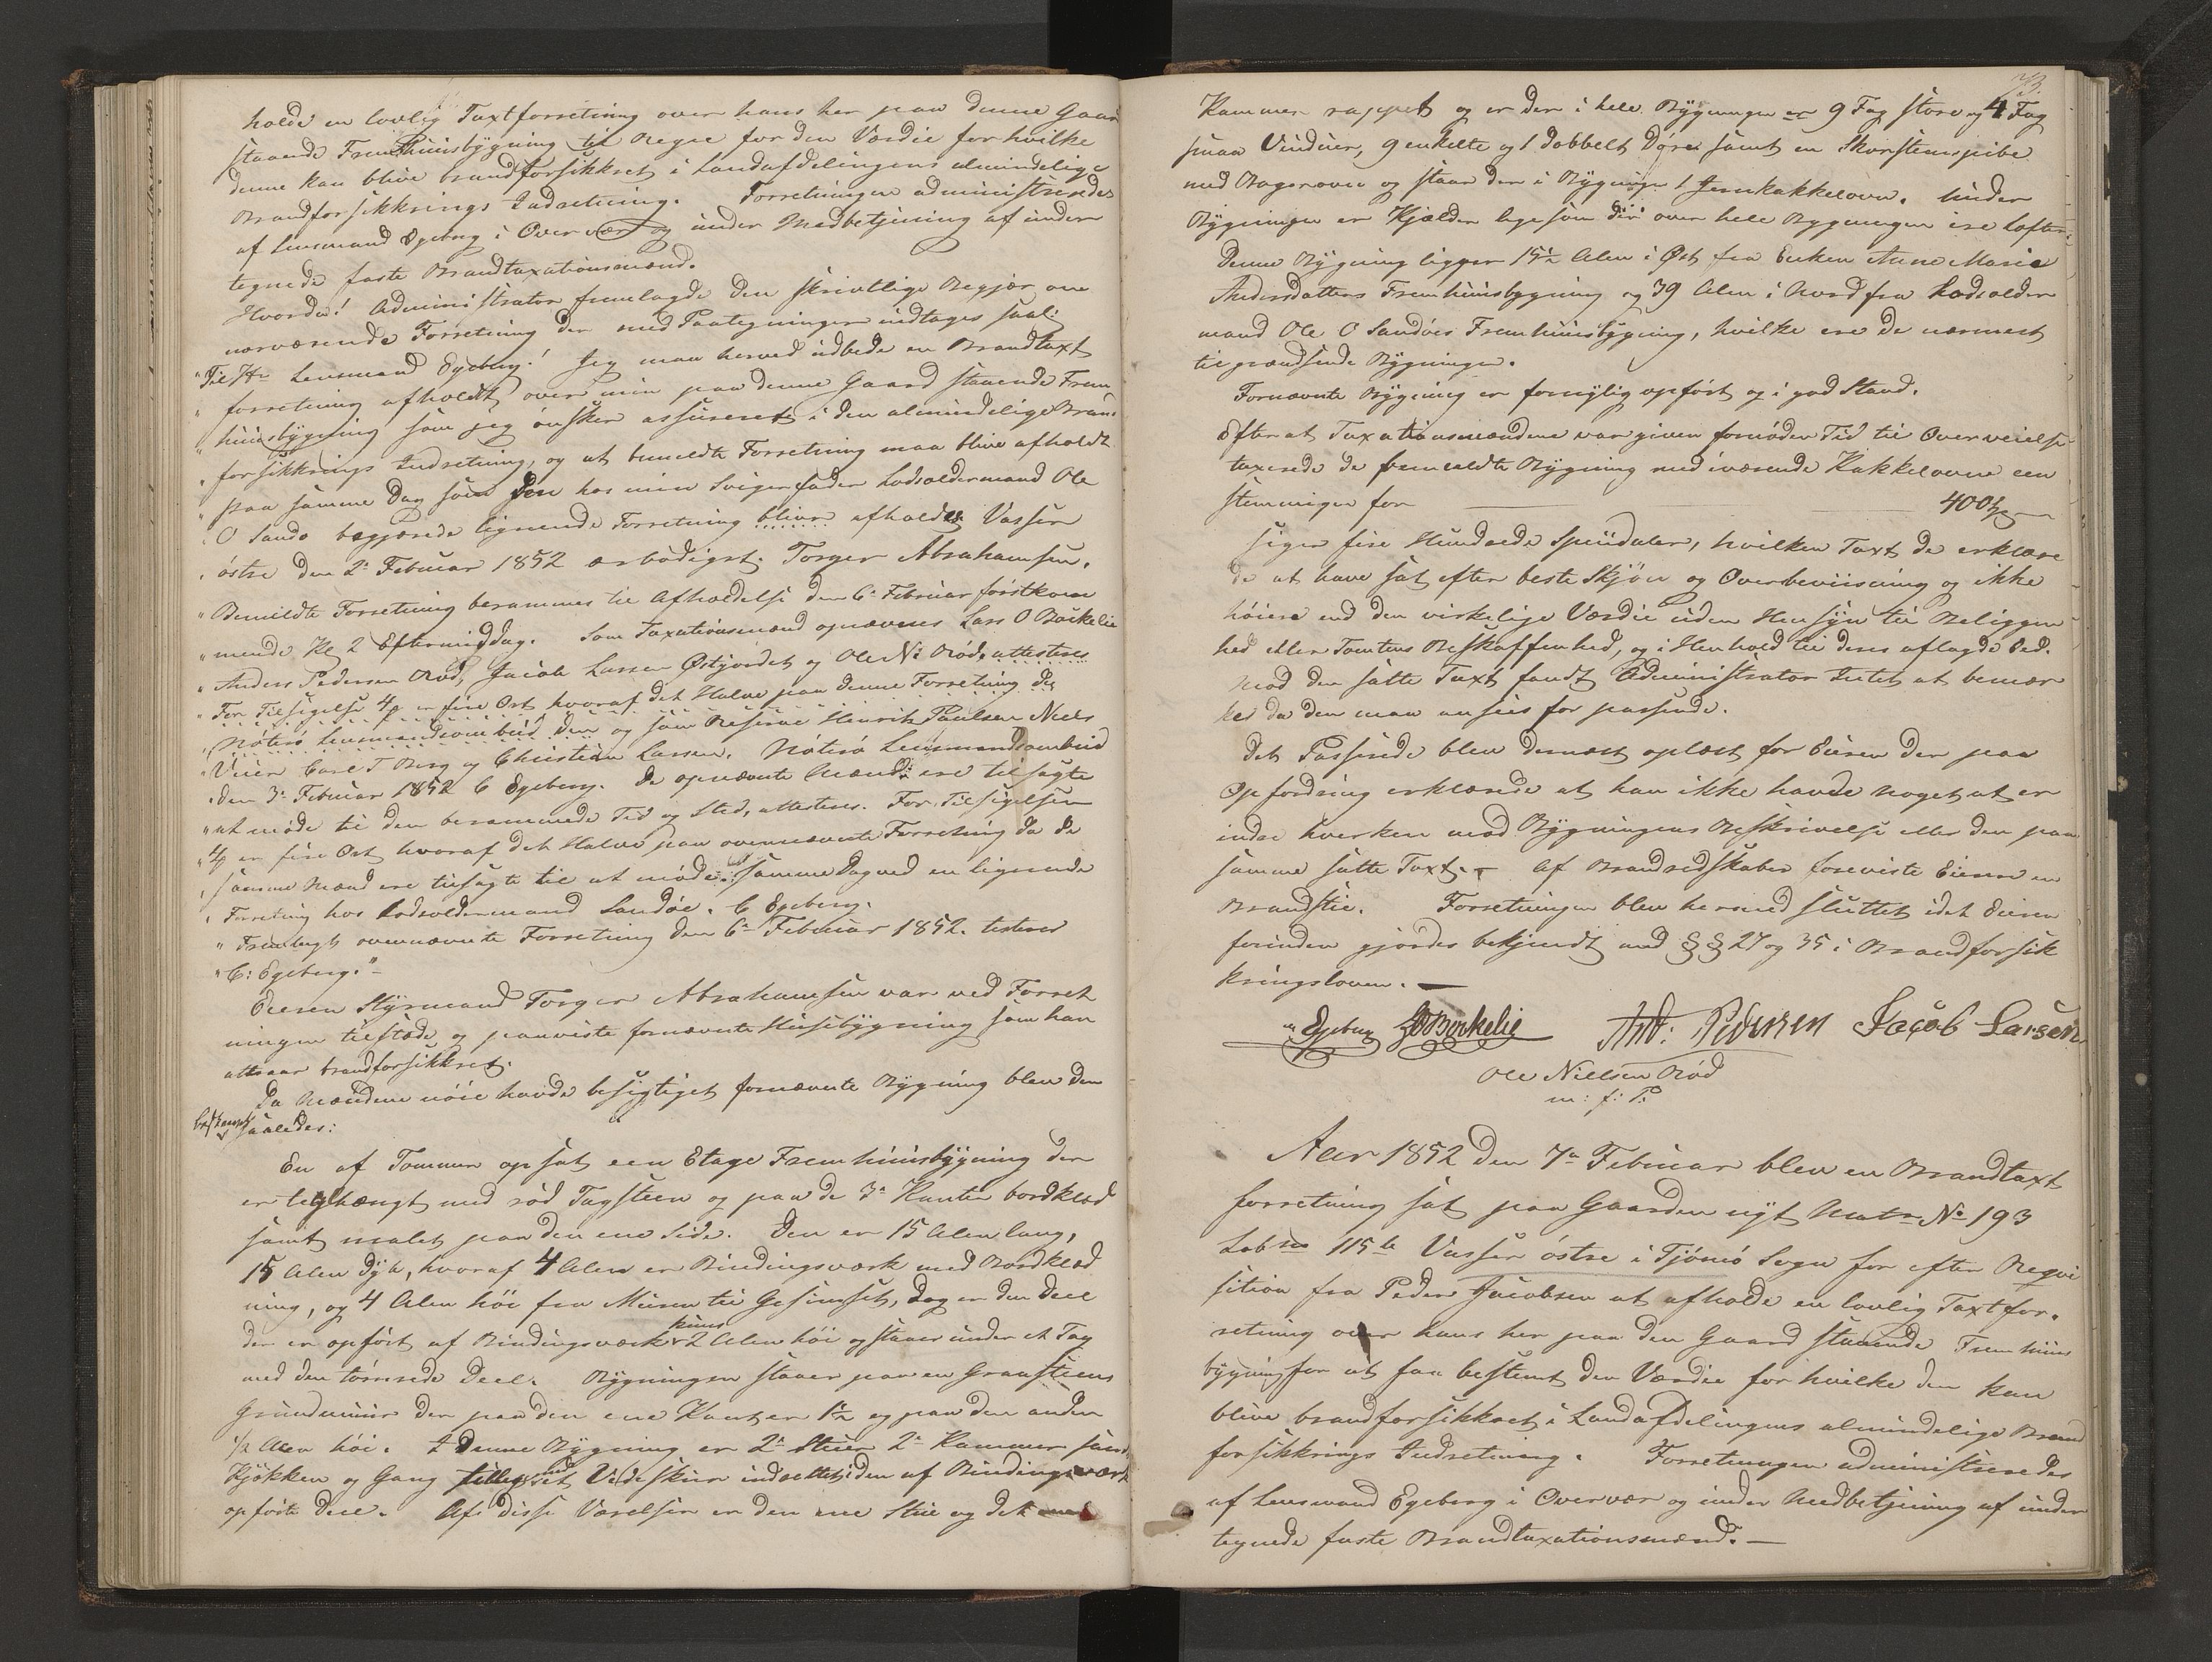 holde en lovlig Taxtforretning over hans her paa denne Gaard
staaende Fremhuusbygning til Regre for den Værdie for hvilke
denne kan blive brandforsikkret i Landafdelingens almindelige
Brandforsikkrings Indretning. Forretningen administreredes
af Lensmand Egeberg i Overvær og under Medbetjening af under
tegnede faste Brandtaxationsmænd.
Hvorda! Administrator fremlagde den skrivtlige Begjær om
nærværende Forretning der med Paategninger indtages saal:
"Til Hr Lensmand Egeberg! Jeg maa herved udbede en Brandtaxt
" forretning afholdt over min paa denne Gaard staaende Frem
" huusbygning som jeg ønsker assureret i den almindelige Brand
" forsikkrings Indretning, og at bemeldte Forretning maa blive afholdt
" paa samme Dag som den hos min Svigerfader Lodsoldermand Ole
" O Sandø begjærede lignende Forretning bliver afholdt Vasser
" østre den 2n Februar 1852 ærbødigst. Torger Abrahamsen.
" Bemeldte Forretning berammes til Afholdelse den 6n Februar førstkom
" mende Kl 2 Eftermiddag. Som Taxationsmænd opnævnes Lars O Bøckelie
" Anders Pedersen Rød, Jacob Larsen Østjordet og Ole Ns Rød, attesteres
" For Tilsigelse 4 ₰ er fire Ort hvoraf det Halve paa denne Forretning da
" Nøterø Lensmandsombud den og som Reserve Henrik Paulsen Niels
" Veier Carl T Berg og Christian Larsen. Nøterø Lensmandsombud
" den 3n Februar 1852 C Egeberg. De opnævnte Mænd ere tilsagte
" at møde til den berammede Tid og Sted, attesteres. For Tilsigelsen
" 4 ₰ er fire Ort hvoraf det Halve paa ovennævnte Forretning da de
" samme Mænd ere tilsagte til at møde samme Dag ved en lignende
" Forretning hos Lodsoldermand Sandøe. C Egeberg.
" Fremlagt ovennævnte Forretning den 6n Februar 1852. testerer
" C: Egeberg."-
Eieren Styrmand Torger Abrahamsen var ved Forret
ningen tilstæde og paaviste fornævnte Huusbygning som han
attraar brandforsikkret.
Da Mændene nøie havde besigtiget fornævnte Bygning blev den
beskrevet saaledes:
En af Tømmer opsat een Etage Fremhuusbygning der
er teglhængt med rød Tagsteen og paa de 3n Kanter bordklæd
samt malet paa den ene Side. Den er 15 Alen lang,
15 Alen dyb, hvoraf 4 Alen er Bindingsværk med Bordklæd
ning, og 4 Alen høi fra Muren til Gesimset, dog er den Deel
der er opført af Bindingsværk kuns 2 Alen høi og staaer under et Tag
med den tømrede Deel. Bygningen staaer paa en Graasteens
Grundmuur der paa den ene Kant er 1½ og paa den anden
½ Alen høi. I denne Bygning er 2n Stuer 2n Kammer samt
Kjøkken og Gang tillige med et Vedeskuur indrettet i den af Bindingsværk
opførte Deel. Af disse Værelser er den ene Stue og det ene
73.
Kammer rappet og er der i hele Bygningen 9 Fag store og 4 Fag
smaa Vinduer, 9 enkelte og 1 dobbelt Døre samt en Skorsteenspibe
med Bagerovn og staar der i Bygningen 1 Jernkakkelovn. Under
Bygningen er Kjælder ligesom der over hele Bygningen ere Lofter
Denne Bygning ligger 15½ Alen i Øst fra Enken Anne Marie
Andersdatters Fremhuusbygning og 39 Alen i Nord fra Lodsolder
mand Ole O Sandøes Fremhuusbygning, hvilke ere de nærmest
til grændsende Bygninger.
Fornævnte Bygning er fornylig opført og i god Stand.
Efter at Taxationsmændene var given fornøden Tid til Overveielse
taxerede de bemeldte Bygning med iværende Kakkelovne een
stemmigen for — 400 —
siger fire Hundrede Speciedaler, hvilken Taxt de erklære
de at have sat efter beste Skjøn og Overbeviisning og ikke
høiere end den virkelige Værdie uden Hensyn til Beliggen
hed eller Tomtens Beskaffenhed, og i Henhold til deres aflagde Eed.
Mod den satte Taxt fandt Administrator Intet at bemær
kes da den maa ansees for passende.
Det Passerede blev dernæst oplæst for Eieren der paa
Opfordring erklærede at han ikke havde noget at er
indre hverken mod Bygningens Beskrivelse eller den paa
samme satte Taxt. - Af Brandredskaber foreviste Eieren en
Brandstie. Forretningen blev hermed sluttet idet Eieren
forinden gjordes bekjendt med §§ 27 og 35 i Brandforsik
kringsloven. —
Egeberg LOBøckelie And: Pedersen Jacob Larsen
Ole Nielsen Rød
m: f: P:
Aar 1852 den 7n Februar blev en Brandtaxt
forretning sat paa Gaarden nyt Matr No 193
Lobno 115b Vasser østre i Tjømø Sogn for efter Reqvi
sition fra Peder Jacobsen at afholde en lovlig Taxtfor.
retning over hans her paa den Gaard staaende Fremhuus
bygning for at faa bestemt den Værdie for hvilke den kan
blive brandforsikkret i Landafdelingens almindelige Brand
forsikkrings Indretning. Forretningen administreredes
af Lensmand Egeberg i Overvær og under Medbetjening af under
tegnede faste Brandtaxationsmænd. —